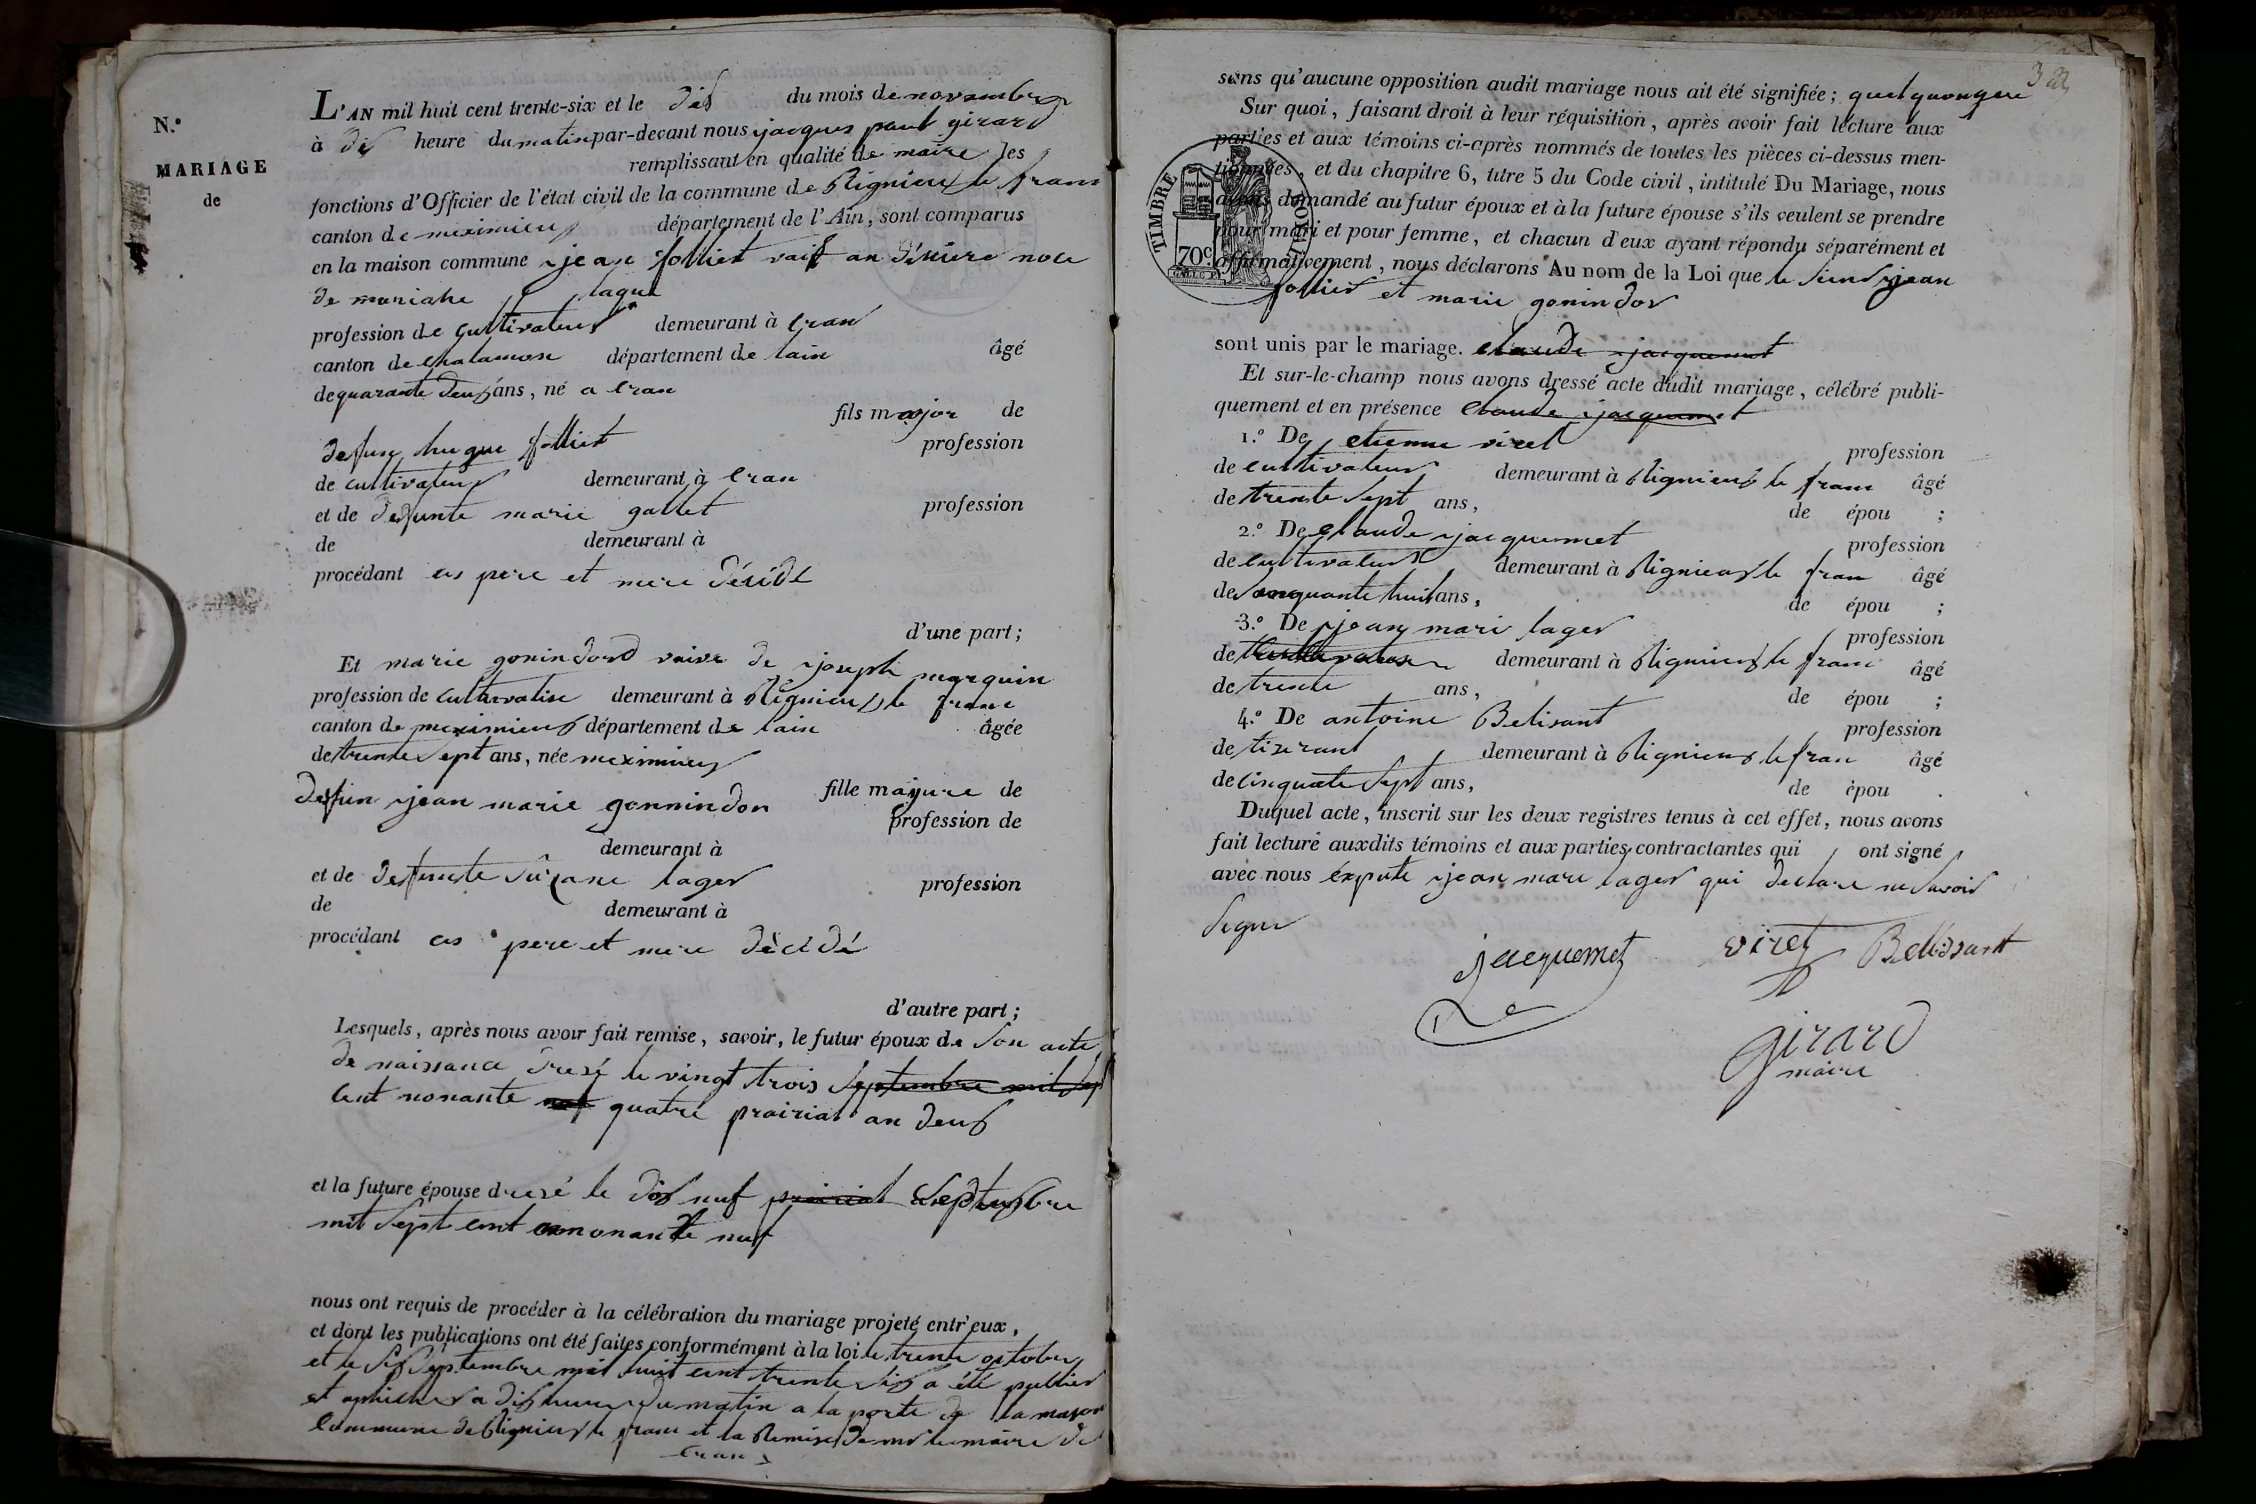 N.º
MARIAGE
de
L'AN mil huit cent trente-six et le dis du mois de novembre
à dis heure du matin par-devant nous jacques paul girard
remplissant en qualité de maire les
fonctions d'Officier de l'état civil de la commune de Rignieux le franc
canton de meximieux département de l'Ain, sont comparus
en la maison commune jean folliet
de mariahe
profession de cultivateur demeurant à Cran
canton de Chalamon département de lain âgé
de quarante deus ans, né a Cran
fils major de
defun hugue folliet profession
de cultivateur demeurant à Cran
et de defunte marie gallet profession
de demeurant à
procédant es pere et mere décidé
d'une part;
Et marie gonindord vaive de joseph marquin
profession de cultivatise demeurant à Rignieux le franc
canton de meximieux département de lain âgée
de trente sept ans, née meximieux
fille majure de
defun jean marie gonnindon profession de
demeurant à
et de defunte Suzane lager profession
de demeurant à
procédant es pere et mere décidé
d'autre part;
Lesquels, après nous avoir fait remise, savoir, le futur époux de son acte
de naissance dresé le vingt trois septembre mil sep
cent nonante quatre prairial an deus
et la future épouse dresé le dis nuf prairial Septembre
mil sept cent nonante nuf
nous ont requis de procéder à la célébration du mariage projeté entr'eux,
et dont les publications ont été faites conformément à la loi le trente octobre
et le sis Septembre mil huit cent trente sis a été publier
et aphicher a dis heure du matin a la porte de la mason
Commune de Rignieux le franc et la Remise de mr le maire de
Cran
sans qu'aucune opposition audit mariage nous ait été signifiée; quelquonque
Sur quoi, faisant droit à leur réquisition, après avoir fait lecture aux
parties et aux témoins ci-après nommés de toutes les pièces ci-dessus men-
tionnées, et du chapitre 6, titre 5 du Code civil, intitulé Du Mariage, nous
avons demandé au futur époux et à la future épouse s'ils veulent se prendre
pour mari et pour femme, et chacun d'eux ayant répondu séparément et
affirmativement, nous déclarons Au nom de la Loi que le Siend jean
folliet et marie gonindor
TIMBRE ROYAL
70c
sont unis par le mariage. claude jacquemet
Et sur-le-champ nous avons dressé acte dudit mariage, célébré publi-
quement et en présence claude jacquemet
1.º De etienne viret profession
de cultivateur demeurant à Rignieux le franc âgé
de trente sept ans, de épou ;
2.º De claude jacquemet profession
de cultivateur demeurant à Rignieux le fran âgé
de sinquante huit ans, de épou ;
3.º De jean mari lager profession
de cultivateur demeurant à Rignieux le franc âgé
de trente ans, de épou ;
4.º De antoine Belisant profession
de tiserant demeurant à Rignieux le fran âgé
de cinquate sept ans, de épou .
Duquel acte, inscrit sur les deux registres tenus à cet effet, nous avons
fait lecture auxdits témoins et aux parties contractantes qui ont signé
avec nous éxpute jean mari lager qui declare ne savoir
signer
jacquemet viret Bellissant
girard
maire